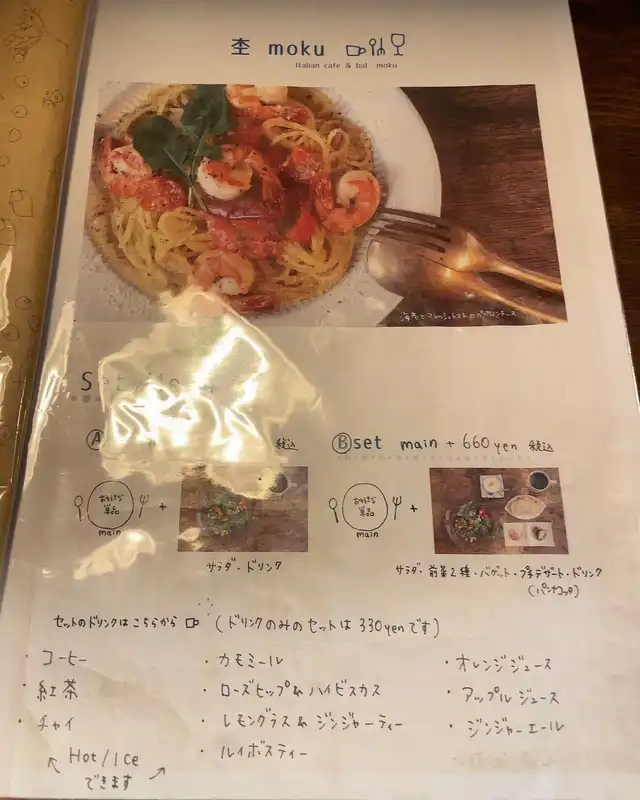 杢 moku
Italian cafe & bal moku
海老とフレッシュトマトのペペロンチーノ
Set Menu
Ⓐ 税込
Ⓑset main + 660yen 税込
お好きな
単品
main
+
サラダ・ドリンク
お好きな
単品
main
+
サラダ・前菜2種・バゲット・プチデザート・ドリンク
(パンナコッタ)
セットのドリンクはこちらから (ドリンクのみのセットは330yenです)
・コーヒー
・紅茶
・チャイ
Hot/Ice
できます
・カモミール
・ローズヒップ&ハイビスカス
・レモングラス&ジンジャーティー
・ルイボスティー
・オレンジジュース
・アップルジュース
・ジンジャーエール